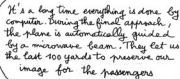 It's a long time everything is done by
computer. During the final approach,
the plane is automatically guided
by a microwave beam. They let us
the last 100 yards to preserve our
image for the passengers